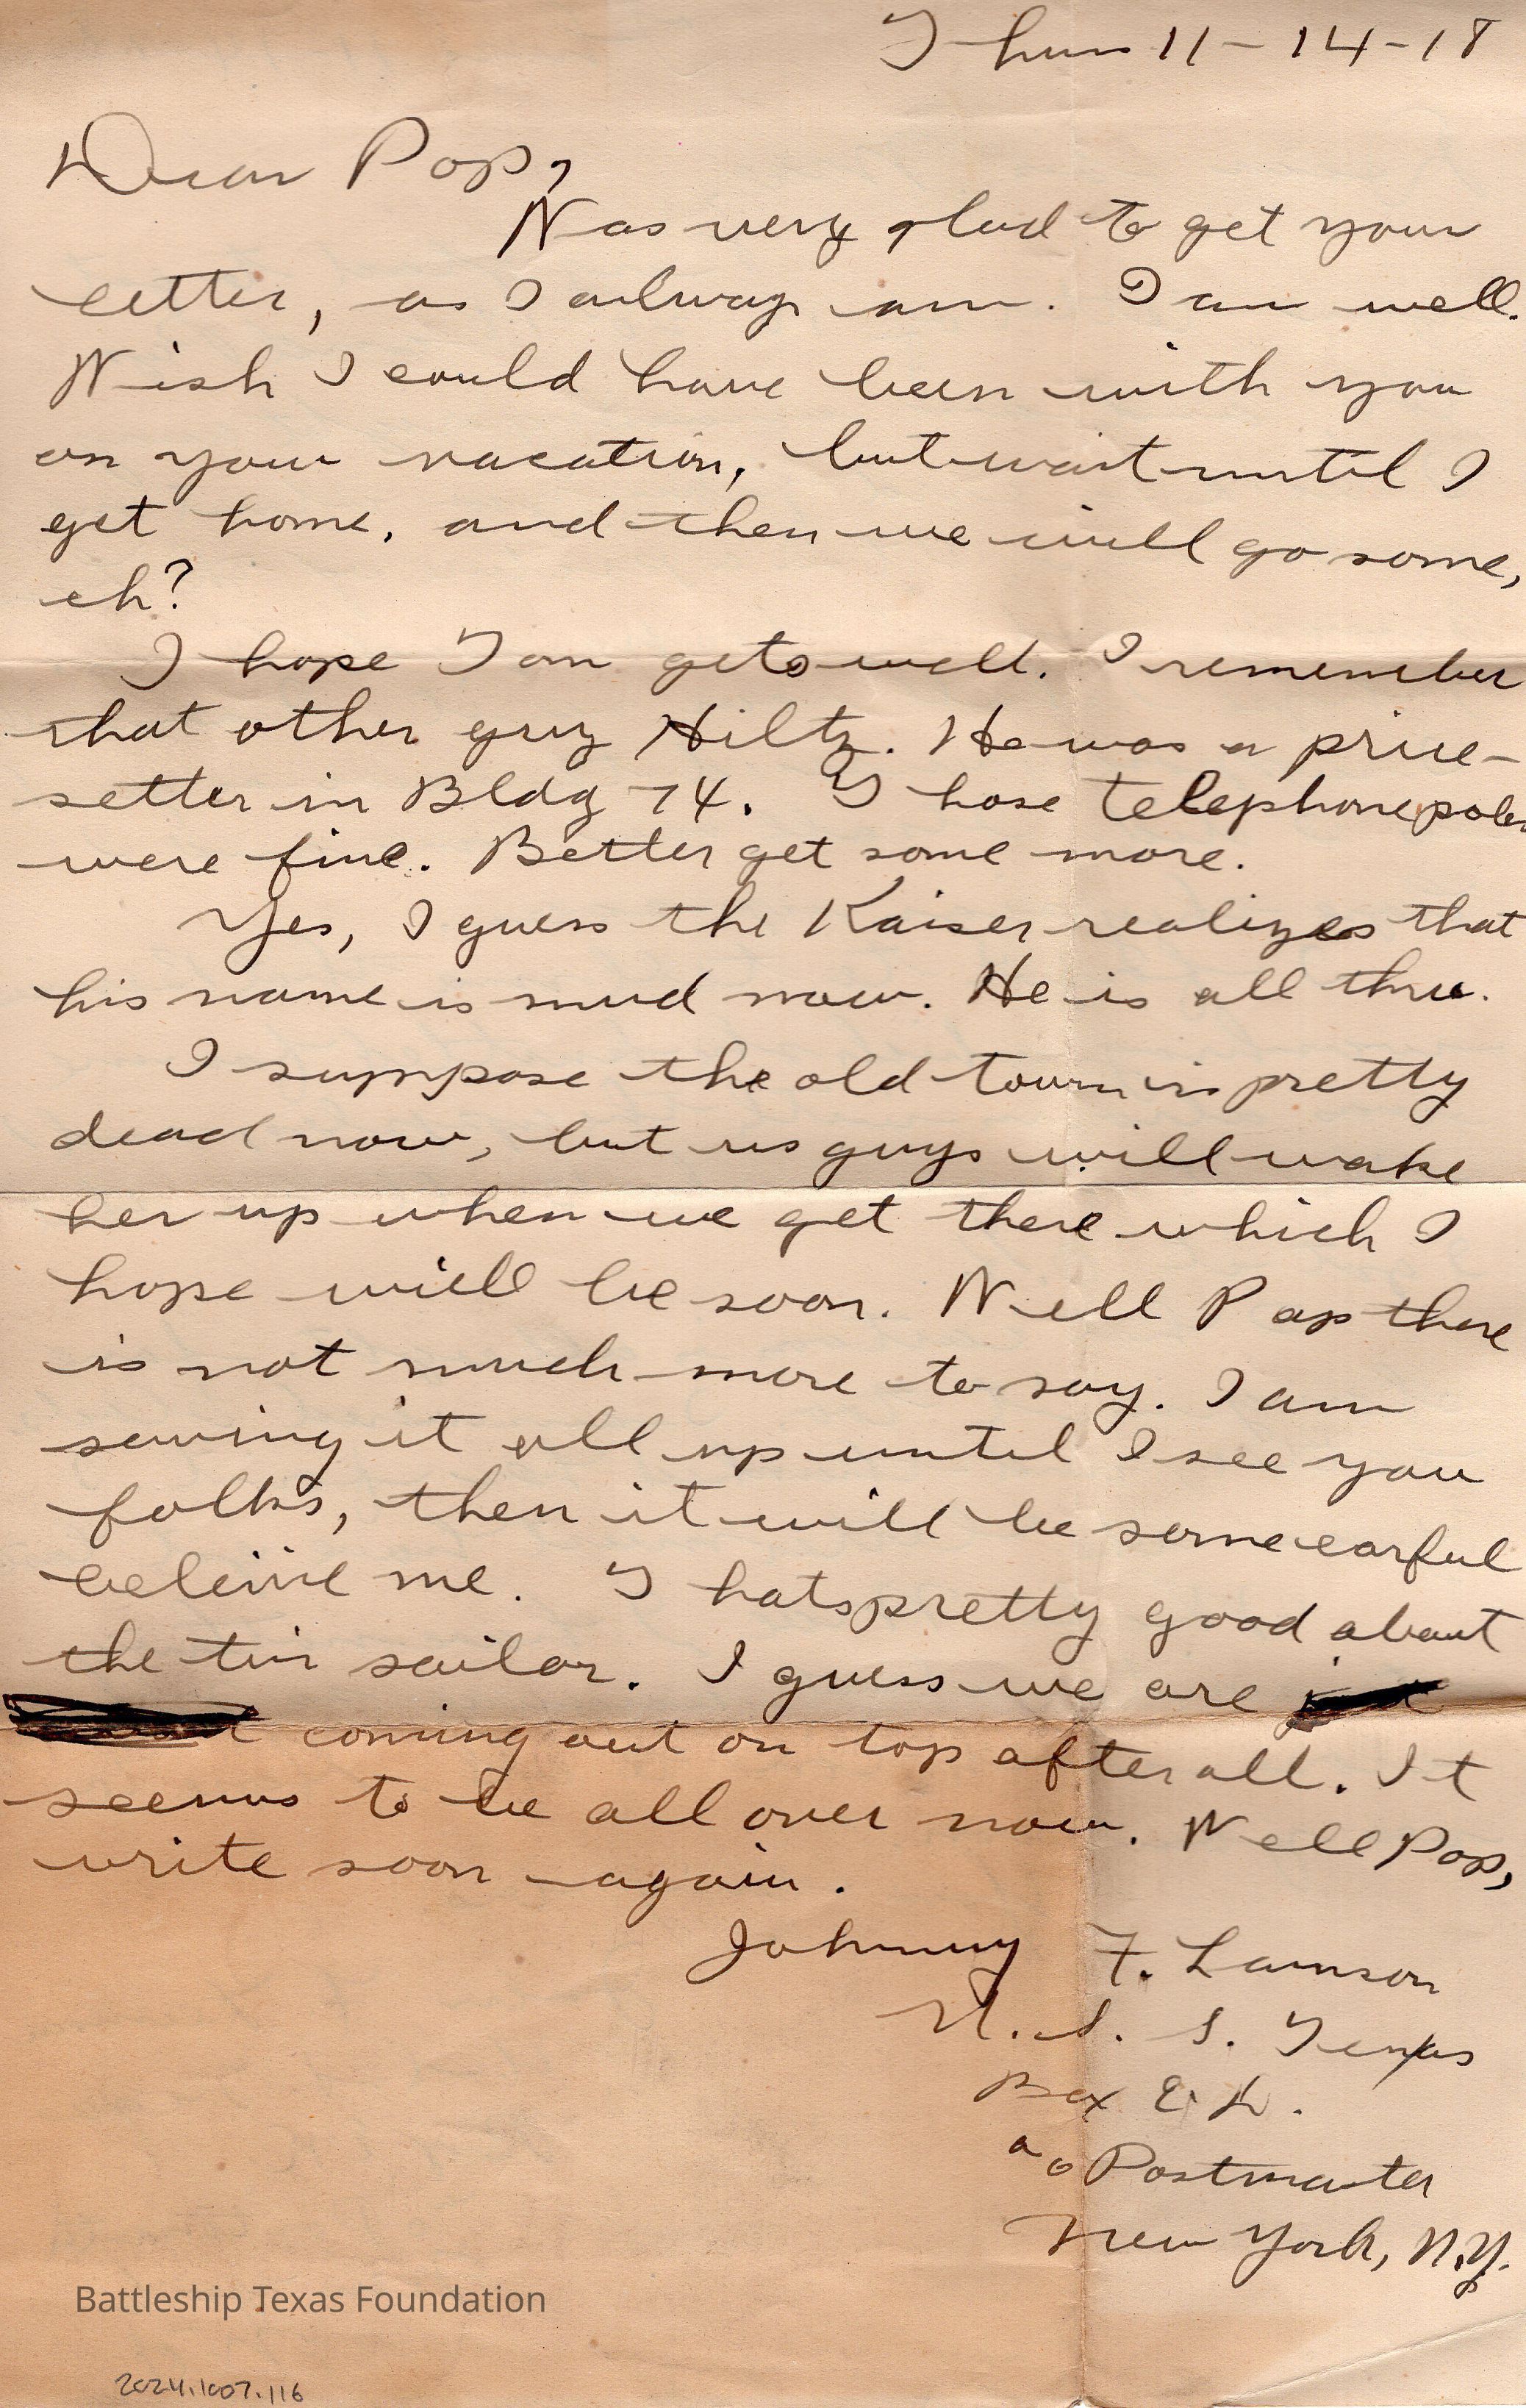 Thurs 11-14-18
Dear Pop,
Was very glad to get your
letter, as I always am. I am well.
Wish I could have been with you
on your vacation, but wait until I
get home, and then we will go some,
eh?
I hope Tom gets well. I remember
that other guy Hiltz. He was a price-
setter in Bldg 74. Those telephone poles
were fine. Better get some more.
Yes, I guess the Kaiser realizes that
his name is mud now. He is all thru.
I suppose the old town is pretty
dead now, but us guys will wake
her up when we get there which I
hope will be soon. Well Pop there
is not much more to say. I am
saving it all up until I see you
folks, then it will be some earful
beleive me. Thats pretty good about
the tin sailor. I guess we are
coming out on top after all. It
seems to be all over now. Well Pop,
write soon again.
Johnny F. Lamson
U. S. S. Texas
Box E. L.
c/o Postmaster
New York, N.Y.
Battleship Texas Foundation
2024.1007.116